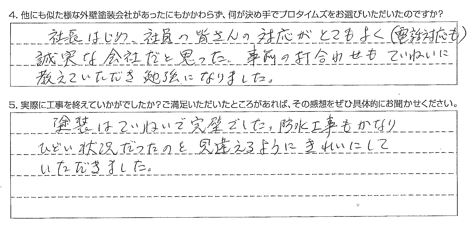 4. 他にも似た様な外壁塗装会社があったにもかかわらず、何が決め手でプロタイムズをお選びいただいたのですか?
社長はじめ、社員の皆さんの対応がとてもよく(電話対応も)
誠実な会社だと思った、事前の打合わせもていねいに
教えていただき勉強になりました。
5. 実際に工事を終えていかがでしたか?ご満足いただいたところがあれば、その感想をぜひ具体的にお聞かせください。
塗装はていねいで完璧でした。防水工事もかなり
ひどい状況だったのと見違えるようにきれいにして
いただきました。